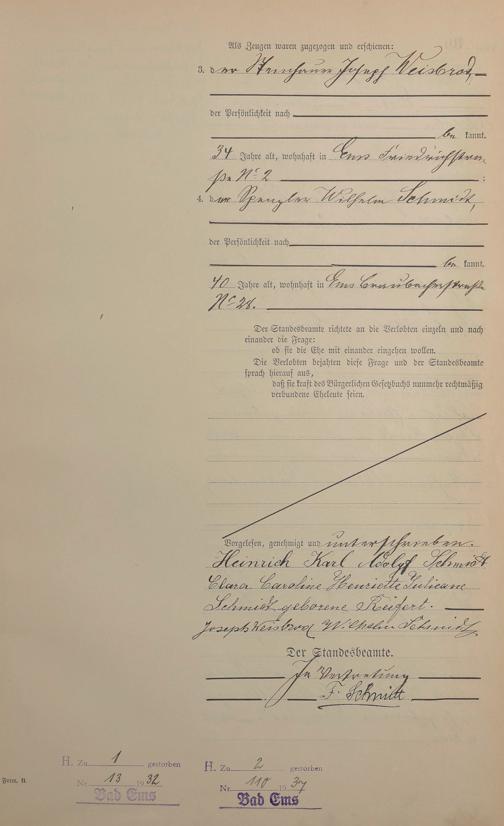 Als Zeugen waren zugezogen und erschienen:
3. der Steinhauer Joseph Weisbrod,
der Persönlichkeit nach
be kannt,
34 Jahre alt, wohnhaft in Ems Friedrichstra-
ße No 2 ;
4. der Spengler Wilhelm Schmidt,
der Persönlichkeit nach
be kannt,
40 Jahre alt, wohnhaft in Ems Braubacherstraße
No 28.
Der Standesbeamte richtete an die Verlobten einzeln und nach
einander die Frage:
ob sie die Ehe mit einander eingehen wollen.
Die Verlobten bejahten diese Frage und der Standesbeamte
sprach hierauf aus,
daß sie kraft des Bürgerlichen Gesetzbuchs nunmehr rechtmäßig
verbundene Eheleute seien.
Vorgelesen, genehmigt und unterschrieben.
Heinrich Karl Adolf Schmidt
Clara Caroline Henriette Juliane
Schmidt geborene Reifert.
Joseph Weisbrod Wilhelm Schmidt
Der Standesbeamte.
In Vertretung
F. Schmitt
H. Zu 1 gestorben
Nr. 13 1932
Bad Ems
H. Zu 2 gestorben
Nr. 110 1937
Bad Ems
Form. B.